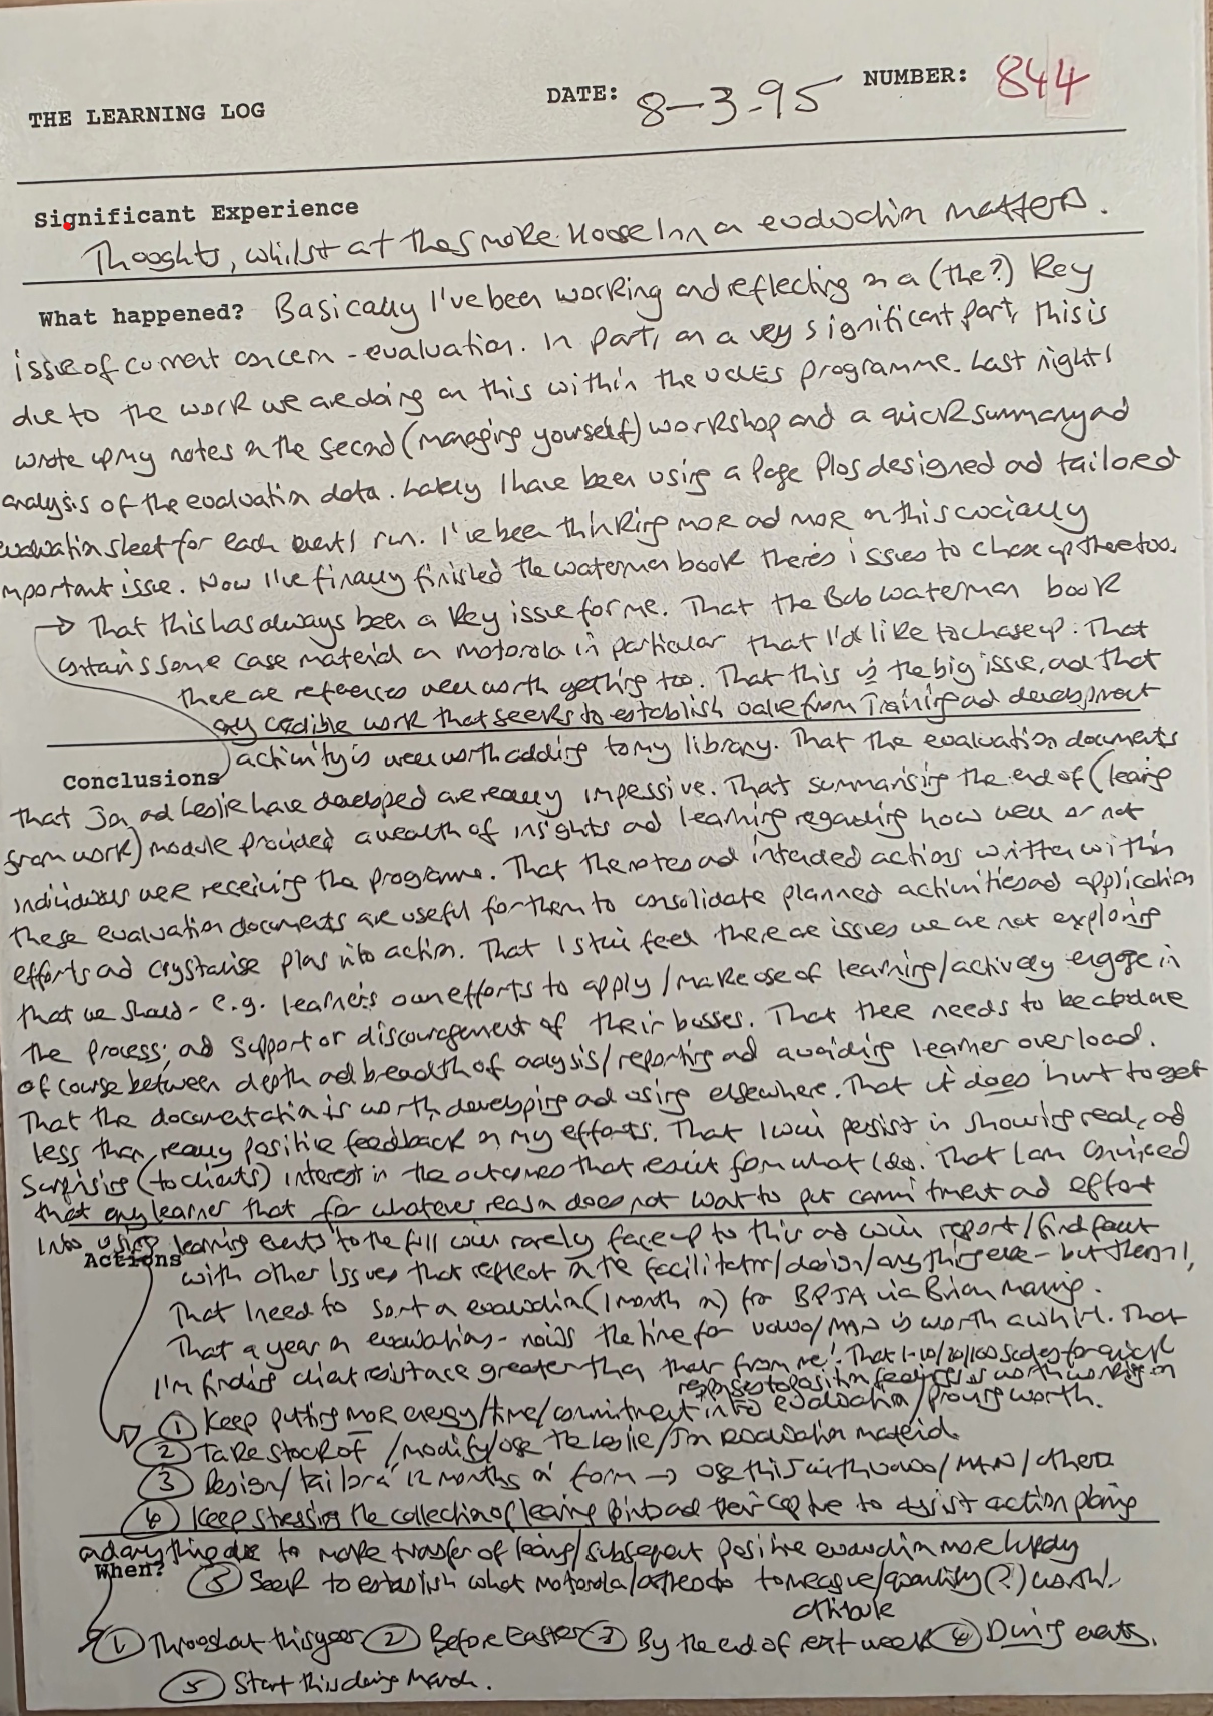 THE LEARNING LOG DATE: 8-3-95 NUMBER: 844
Significant Experience
Thoughts, whilst at the Smoke House Inn on evaluation matters.
What happened? Basically I've been working and reflecting on a (the?) key
issue of current concern - evaluation. In part, on a very significant part, this is
due to the work we are doing on this within the UCLES programme. Last night I
wrote up my notes on the second (managing yourself) workshop and a quick summary and
analysis of the evaluation data. Lately I have been using a page plus designed and tailored
evaluation sheet for each event I run. I've been thinking more and more on this crucially
important issue. Now I've finally finished the Waterman book there's issues to chase up there too.
→ That this has always been a key issue for me. That the Bob Waterman book
contains some case material on Motorola in particular that I'd like to chase up. That
there are references well worth getting too. That this is the big issue, and that
any credible work that seeks to establish value from Training and development
activity is well worth adding to my library. That the evaluation documents
Conclusions
that Jon and Leslie have developed are really impressive. That summarising the end of (learning
from work) module provided a wealth of insights and learning regarding how well or not
individuals were receiving the programme. That the notes and intended actions written within
these evaluation documents are useful for them to consolidate planned activities and application
efforts and crystalise plans into action. That I still feel there are issues we are not exploring
that we should - e.g. learners own efforts to apply/make use of learning/actively engage in
the process; and support or discouragement of their bosses. That there needs to be a balance
of course between depth and breadth of analysis/reporting and avoiding learner overload.
That the documentation is worth developing and using elsewhere. That it does hurt to get
less than really positive feedback on my efforts. That I will persist in showing real, and
surprising (to clients) interest in the outcomes that result from what I do. That I am convinced
that any learner that for whatever reason does not want to put commitment and effort
into using learning events to the full will rarely face up to this and will report/find fault
Actions
with other issues that reflect on the facilitator/design/anything else - but them!,
That I need to sort an evaluation (1 month on) for BPJA via Brian
That a year on evaluation - now's the time for Volvo/MAN is worth a whirl. That
I'm finding client resistance greater than their from me! That 1-10/20/100 scales for quick
responses to position feelings is worth working on
① Keep putting more energy/time/commitment into evaluation/proving worth.
② Take stock of/modify/use the Leslie/Jon evaluation material.
③ Design/tailor a '12 months on' form → use this with Volvo/MAN/others
④ Keep stressing the collection of learning points and their capture to assist action planning
and anything else to make transfer of learning/subsequent positive evaluation more likely
When?
⑤ Seek to establish what Motorola/others do to measure/quantify(?) worth.
attribute
① Throughout this year ② Before Easter ③ By the end of next week ④ During events.
⑤ Start this during March.